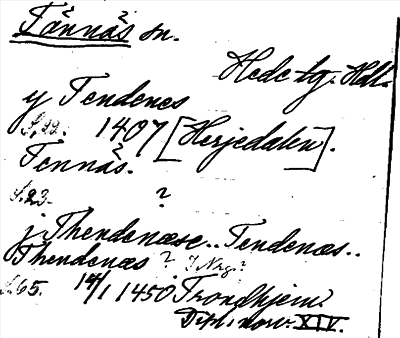 Tännäs sn.
Hede tg. Hdl.
y Tendenes
S. 22. 1407 [Herjedalen].
Tennäs.
S. 23. ?
j Thendenæse.. Tendenæs..
Thendenæs ? ?
S. 65. 14/1 1450 Trondhjem.
Dipl. norv. XIV.